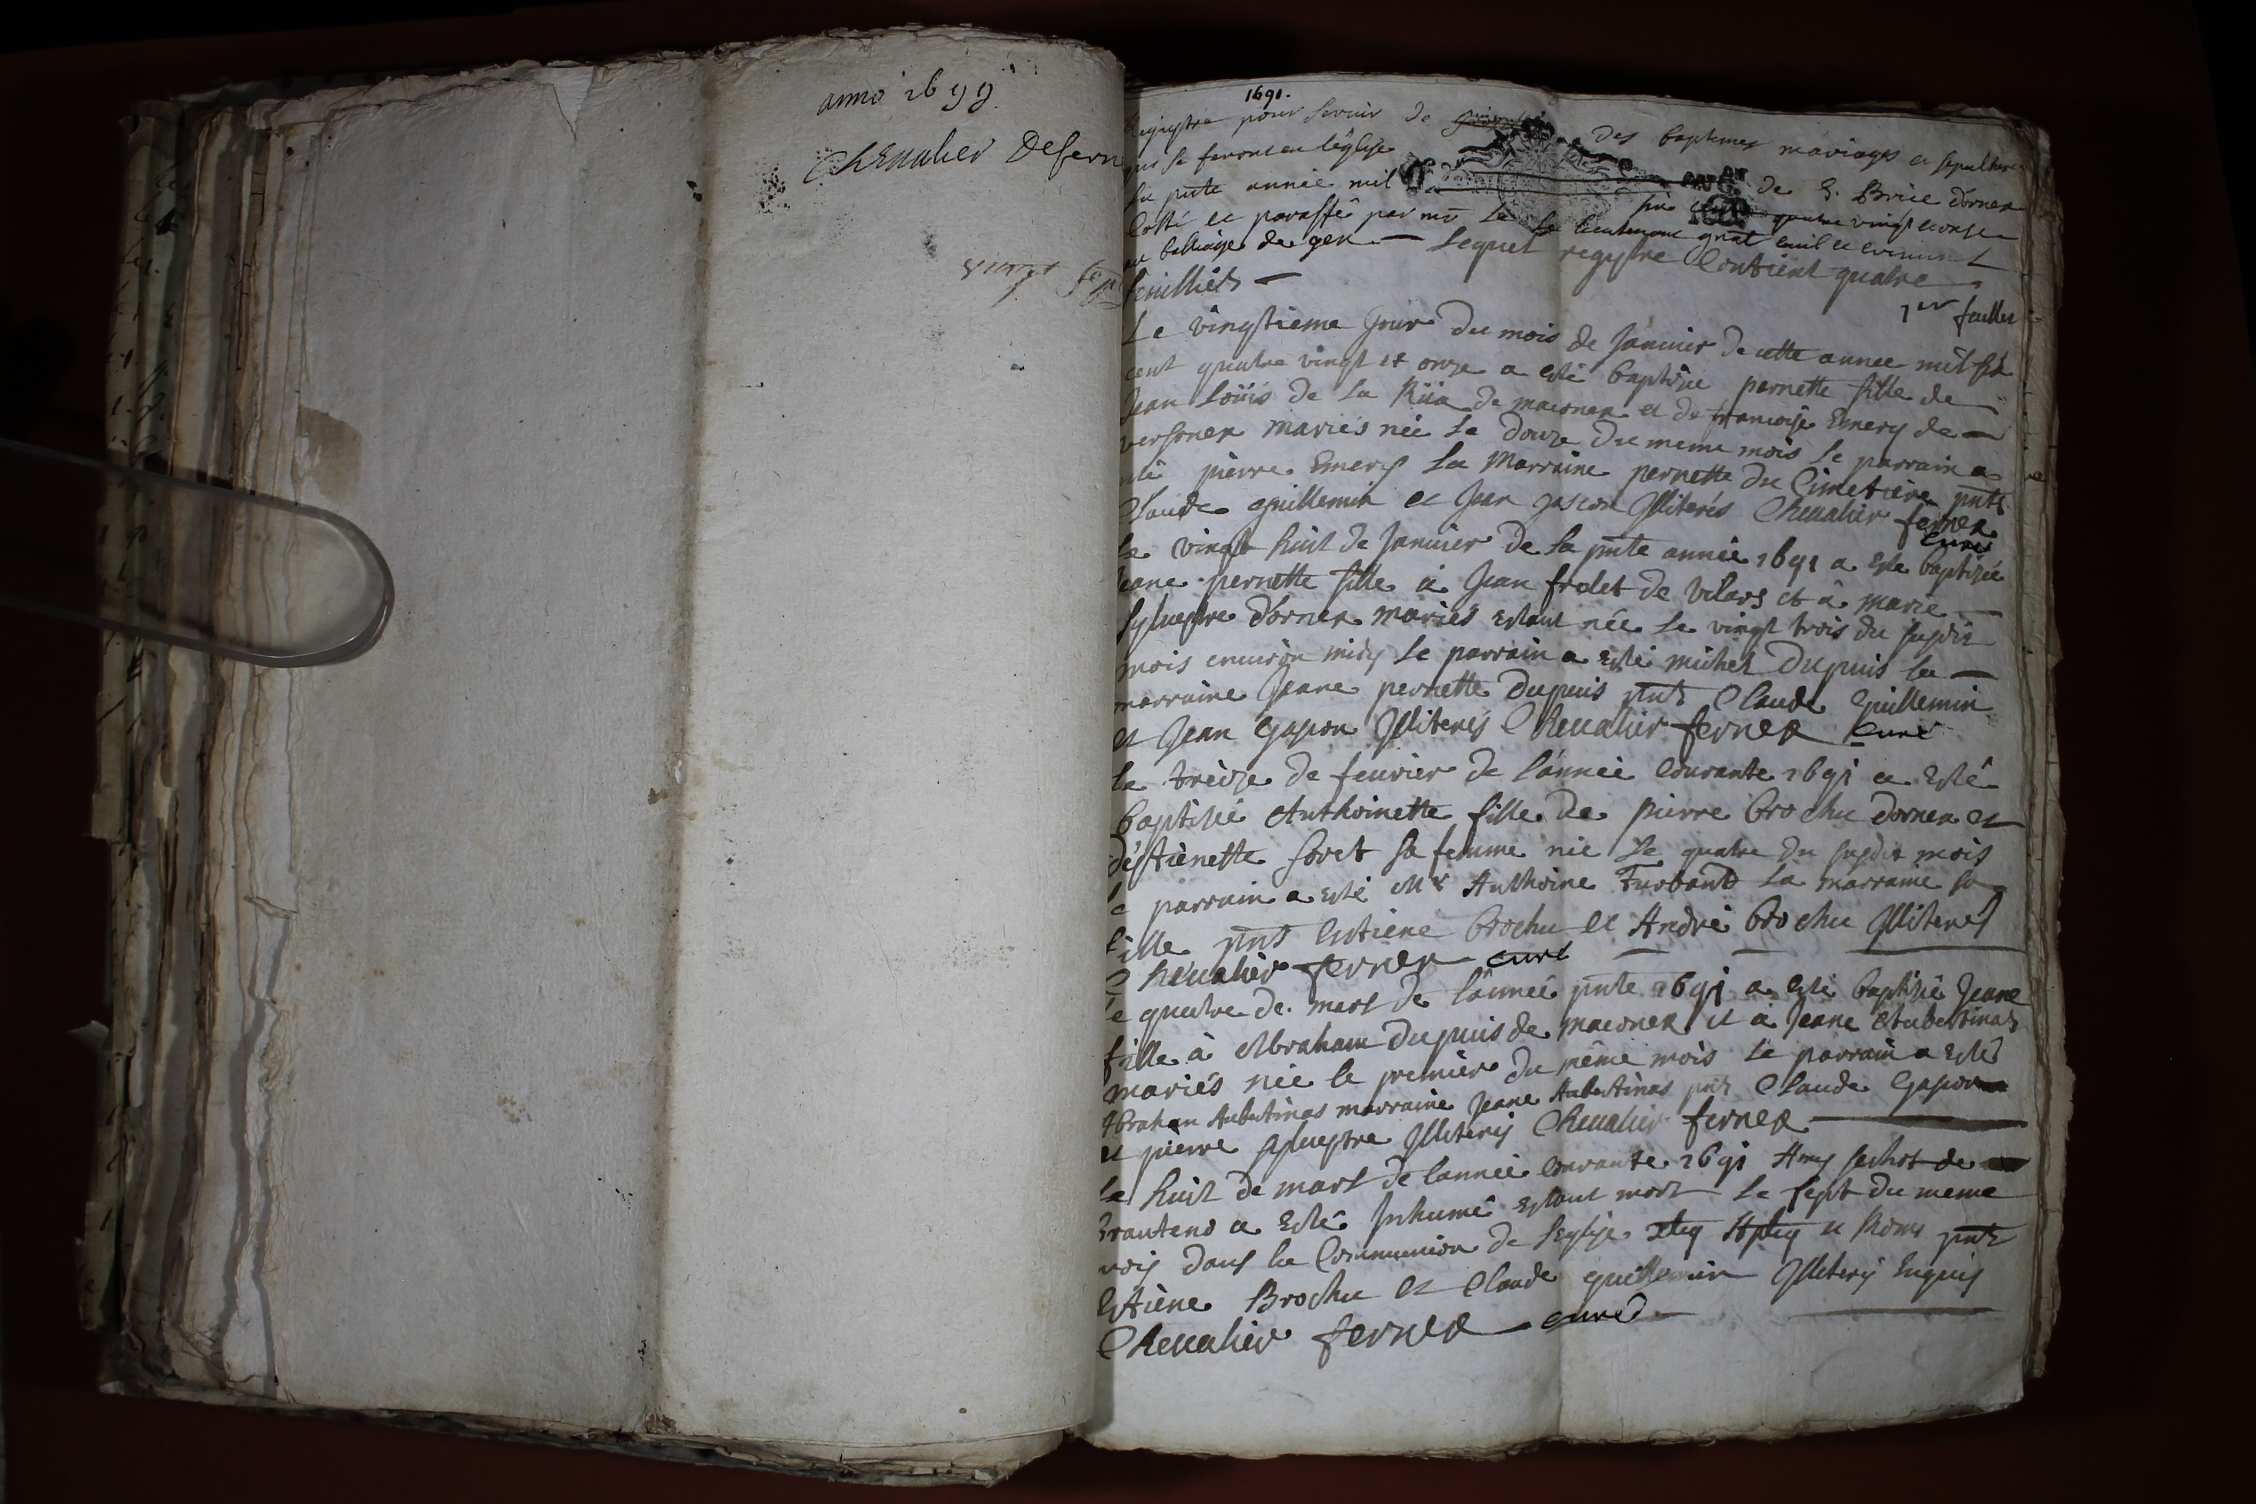 anno 1699
Chevalier Defern
vingt
1691.
Registre pour servir de des baptemes mariages et sepultures
qui se feront en l'église de S. Brice d'ornex
la pnte année mil six cent quatre vingt et onze
Cotté et paraffé par le lieutenant gnal civil et criminel
au balliage de gex — Lequel registre Contient quatre
feuillets —
1er feuillet
Le vingtieme Jour du mois de Janvier de cette annee mil six
cent quatre vingt et onze a esté baptisée pernette fille de
Jean Loüis de La Rüa de maconex et de francoise Emery de —
versonex mariés née le douze du meme mois le parrain a
esté pierre Emery La Marraine pernette du Cimetiere pnts
Claude guillemin et Jean gascon Illiterés Chevalier fernex
Curé
le vingt huit de Janvier de la pnte année 1691 a este baptisée
Jeane pernette fille à Jean frolet de vilars et à marie —
Sylvestre d'ornex mariés estant née le vingt trois du susdit
mois environ midy le parrain a esté michel Dupuis la —
marraine Jeane pernette Dupuis pnts Claude guillemin
et Jean Gascon Illiterés Chevalier fernex Curé
le treize de fevrier de l'année Courante 1691 a esté
baptisée Anthoinette fille de pierre brochu dornex et
d'éstienette foret sa femme née le quatre du susdit mois
le parrain a esté Mr Anthoine la marraine sa
fille pnts Estiene brochu et André brochu Illiterés
Chevalier fernex curé
Le quatre de mars de l'année pnte 1691 a esté baptisée Jeane
fille à Abraham Dupuis de maconex et à Jeane Aubertinas
mariés née le premier du même mois le parrain a esté
Abraham Aubertinas marraine Jeane Aubertinas pnts Claude Gascon
et pierre Sylvestre Illiterés Chevalier fernex —
Le huit de mars de l'année Courante 1691 Amy de
a esté Inhumé estant mort le sept du meme
mois dans la Communion de l'eglise et Rome pnts
Estiene Brochu et Claude guillemin Illiterés Enquis
Chevalier fernex curé —